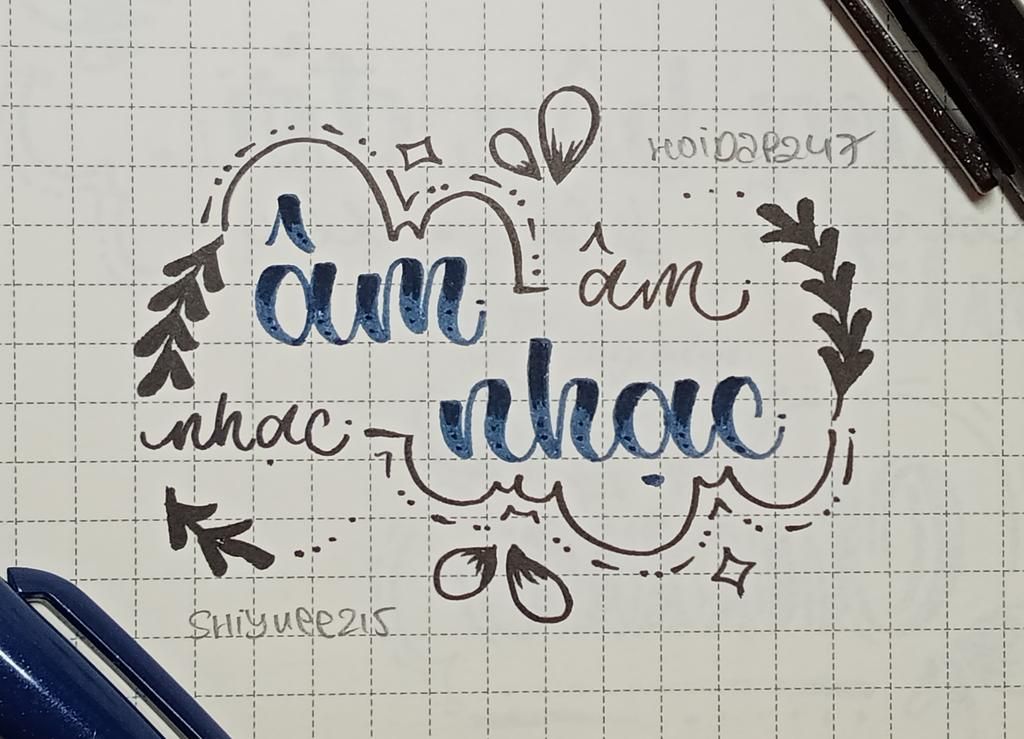 HOiDAP247
âm âm
nhạc nhạc
SHiYuee215